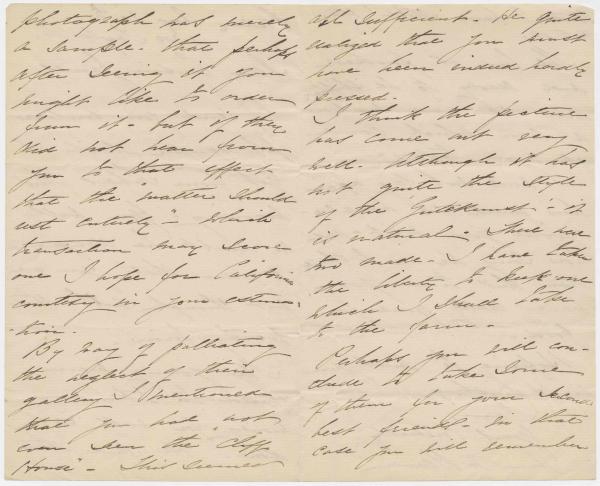 photograph was merely
a sample - that perhaps
after seeing it you
might like to order
from it - but if they
did not hear from
you to that effect
that the "matter should
rest entirely" - which
transaction may score
one I hope for California
courtesy in your estima-
-tion.
By way of palliating
the neglect of their
gallery I mentioned
that you had not
even seen the "Cliff
House" - This seemed
all sufficient - He quite
realized that you must
have been indeed hardly
pressed.
I think the picture
has come out very
well - Although it has
not quite the style
of the "Gutekunst" - it
is natural - There were
two made - I have taken
the liberty to keep one
which I shall take
to the farm -
Perhaps you will con-
clude to take some
of them for your second
best friends - in that
case you will remember